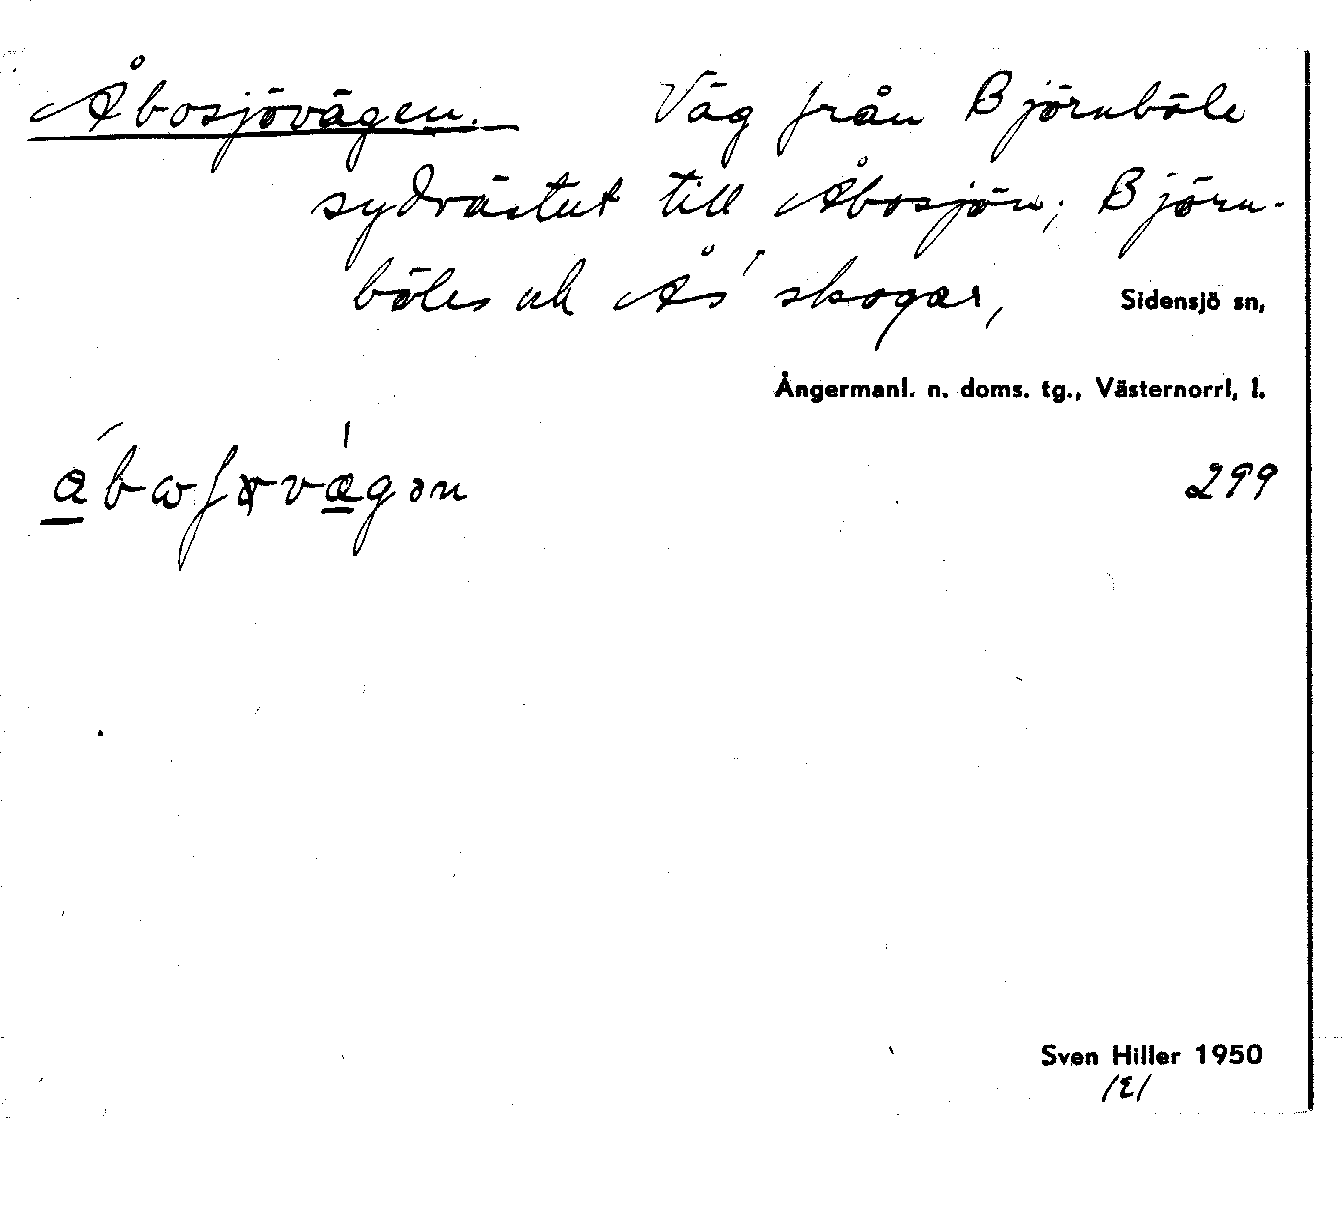 Åbosjövägen. Väg från Björnböle
sydvästut till Åbosjön; Björn-
böles och Ås' skogar, Sidensjö sn,
Ångermanl. n. doms. tg., Västernorrl, l.
299
Sven Hiller 1950